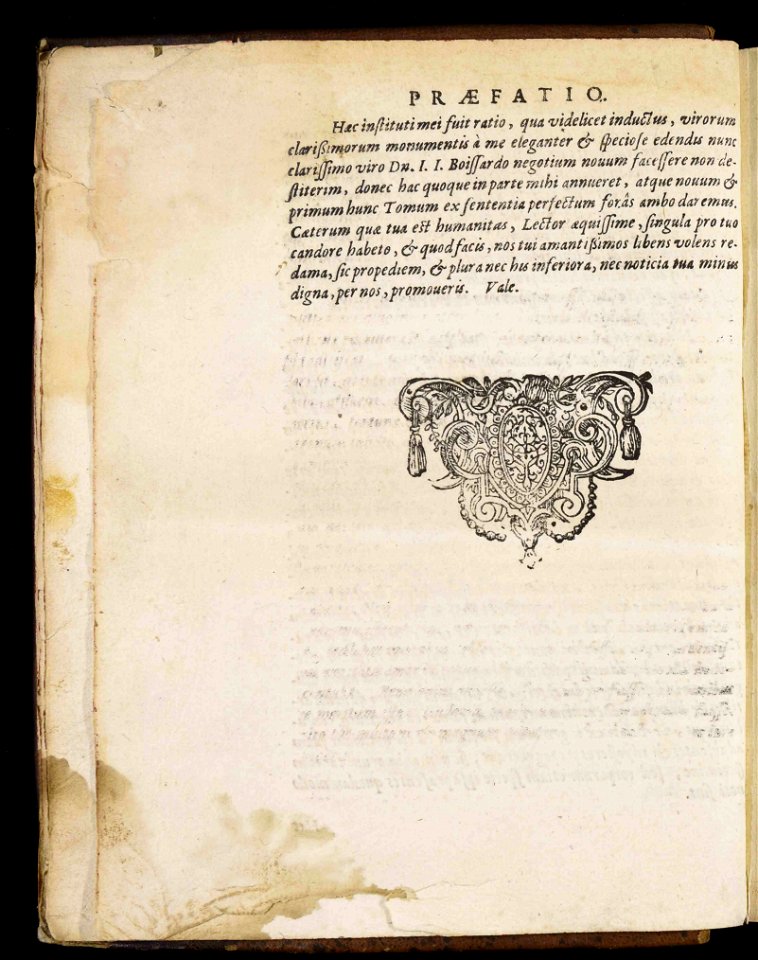 PRÆFATIO.
Hæc instituti mei fuit ratio, qua videlicet inductus, virorum
clarißimorum monumentis à me eleganter & speciose edendis nunc
clarissimo viro Dn. I. I. Boissardo negotium nouum facessere non de-
stiterim, donec hac quoque in parte mihi annueret, atque nouum &
primum hunc Tomum ex sententia perfectum forâs ambo daremus.
Cæterum quæ tua est humanitas, Lector æquissime, singula pro tuo
candore habeto, & quod facis, nos tui amantißimos libens volens re-
dama, sic propediem, & plura nec his inferiora, nec noticia tua minus
digna, per nos, promoueris. Vale.